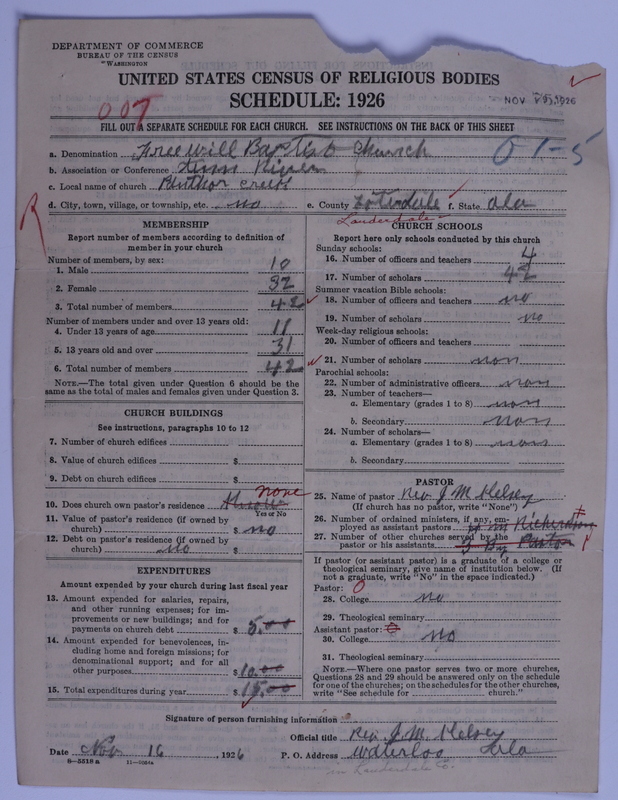 DEPARTMENT OF COMMERCE
BUREAU OF THE CENSUS
WASHINGTON
UNITED STATES CENSUS OF RELIGIOUS BODIES
SCHEDULE: 1926
NOV 1926
007
FILL OUT A SEPARATE SCHEDULE FOR EACH CHURCH. SEE INSTRUCTIONS ON THE BACK OF THIS SHEET
a. Denomination Freewill Baptist Church
01-5
b. Association or Conference
c. Local name of church Panther Creek
d. City, town, village, or township, etc. no
e. County Loterdale f. State Ala
Lauderdale
R
MEMBERSHIP
Report number of members according to definition of
member in your church
Number of members, by sex:
1. Male 10
2. Female 32
3. Total number of members 42
Number of members under and over 13 years old:
4. Under 13 years of age 11
5. 13 years old and over 31
6. Total number of members 42
NOTE.—The total given under Question 6 should be the
same as the total of males and females given under Question 3.
CHURCH BUILDINGS
See instructions, paragraphs 10 to 12
7. Number of church edifices
8. Value of church edifices $
9. Debt on church edifices $
10. Does church own pastor's residence none
Yes or No
11. Value of pastor's residence (if owned by
church) $ no
12. Debt on pastor's residence (if owned by
church) no $
EXPENDITURES
Amount expended by your church during last fiscal year
13. Amount expended for salaries, repairs,
and other running expenses; for im-
provements or new buildings; and for
payments on church debt $ 5.00
14. Amount expended for benevolences, in-
cluding home and foreign missions; for
denominational support; and for all
other purposes $ 10.00
15. Total expenditures during year $ 15.00
CHURCH SCHOOLS
Report here only schools conducted by this church
Sunday schools:
16. Number of officers and teachers 4
17. Number of scholars 42
Summer vacation Bible schools:
18. Number of officers and teachers no
19. Number of scholars no
Week-day religious schools:
20. Number of officers and teachers
21. Number of scholars non
Parochial schools:
22. Number of administrative officers non
23. Number of teachers—
a. Elementary (grades 1 to 8) non
b. Secondary non
24. Number of scholars—
a. Elementary (grades 1 to 8) non
b. Secondary
PASTOR
25. Name of pastor Rev. J M Helsey
(If church has no pastor, write "None")
26. Number of ordained ministers, if any, em-
ployed as assistant pastors
27. Number of other churches served by the
pastor or his assistants
If pastor (or assistant pastor) is a graduate of a college or
theological seminary, give name of institution below. (If
not a graduate, write "No" in the space indicated.)
Pastor: 0
28. College no
29. Theological seminary
Assistant pastor:
30. College no
31. Theological seminary
NOTE.—Where one pastor serves two or more churches,
Questions 28 and 29 should be answered only on the schedule
for one of the churches; on the schedules for the other churches,
write "See schedule for ........ church."
Signature of person furnishing information
Official title Rev. J. M. Helsey
Date Nov 16 1926
P. O. Address Waterloo Ala
8-5518 a
in Lauderdale Co.